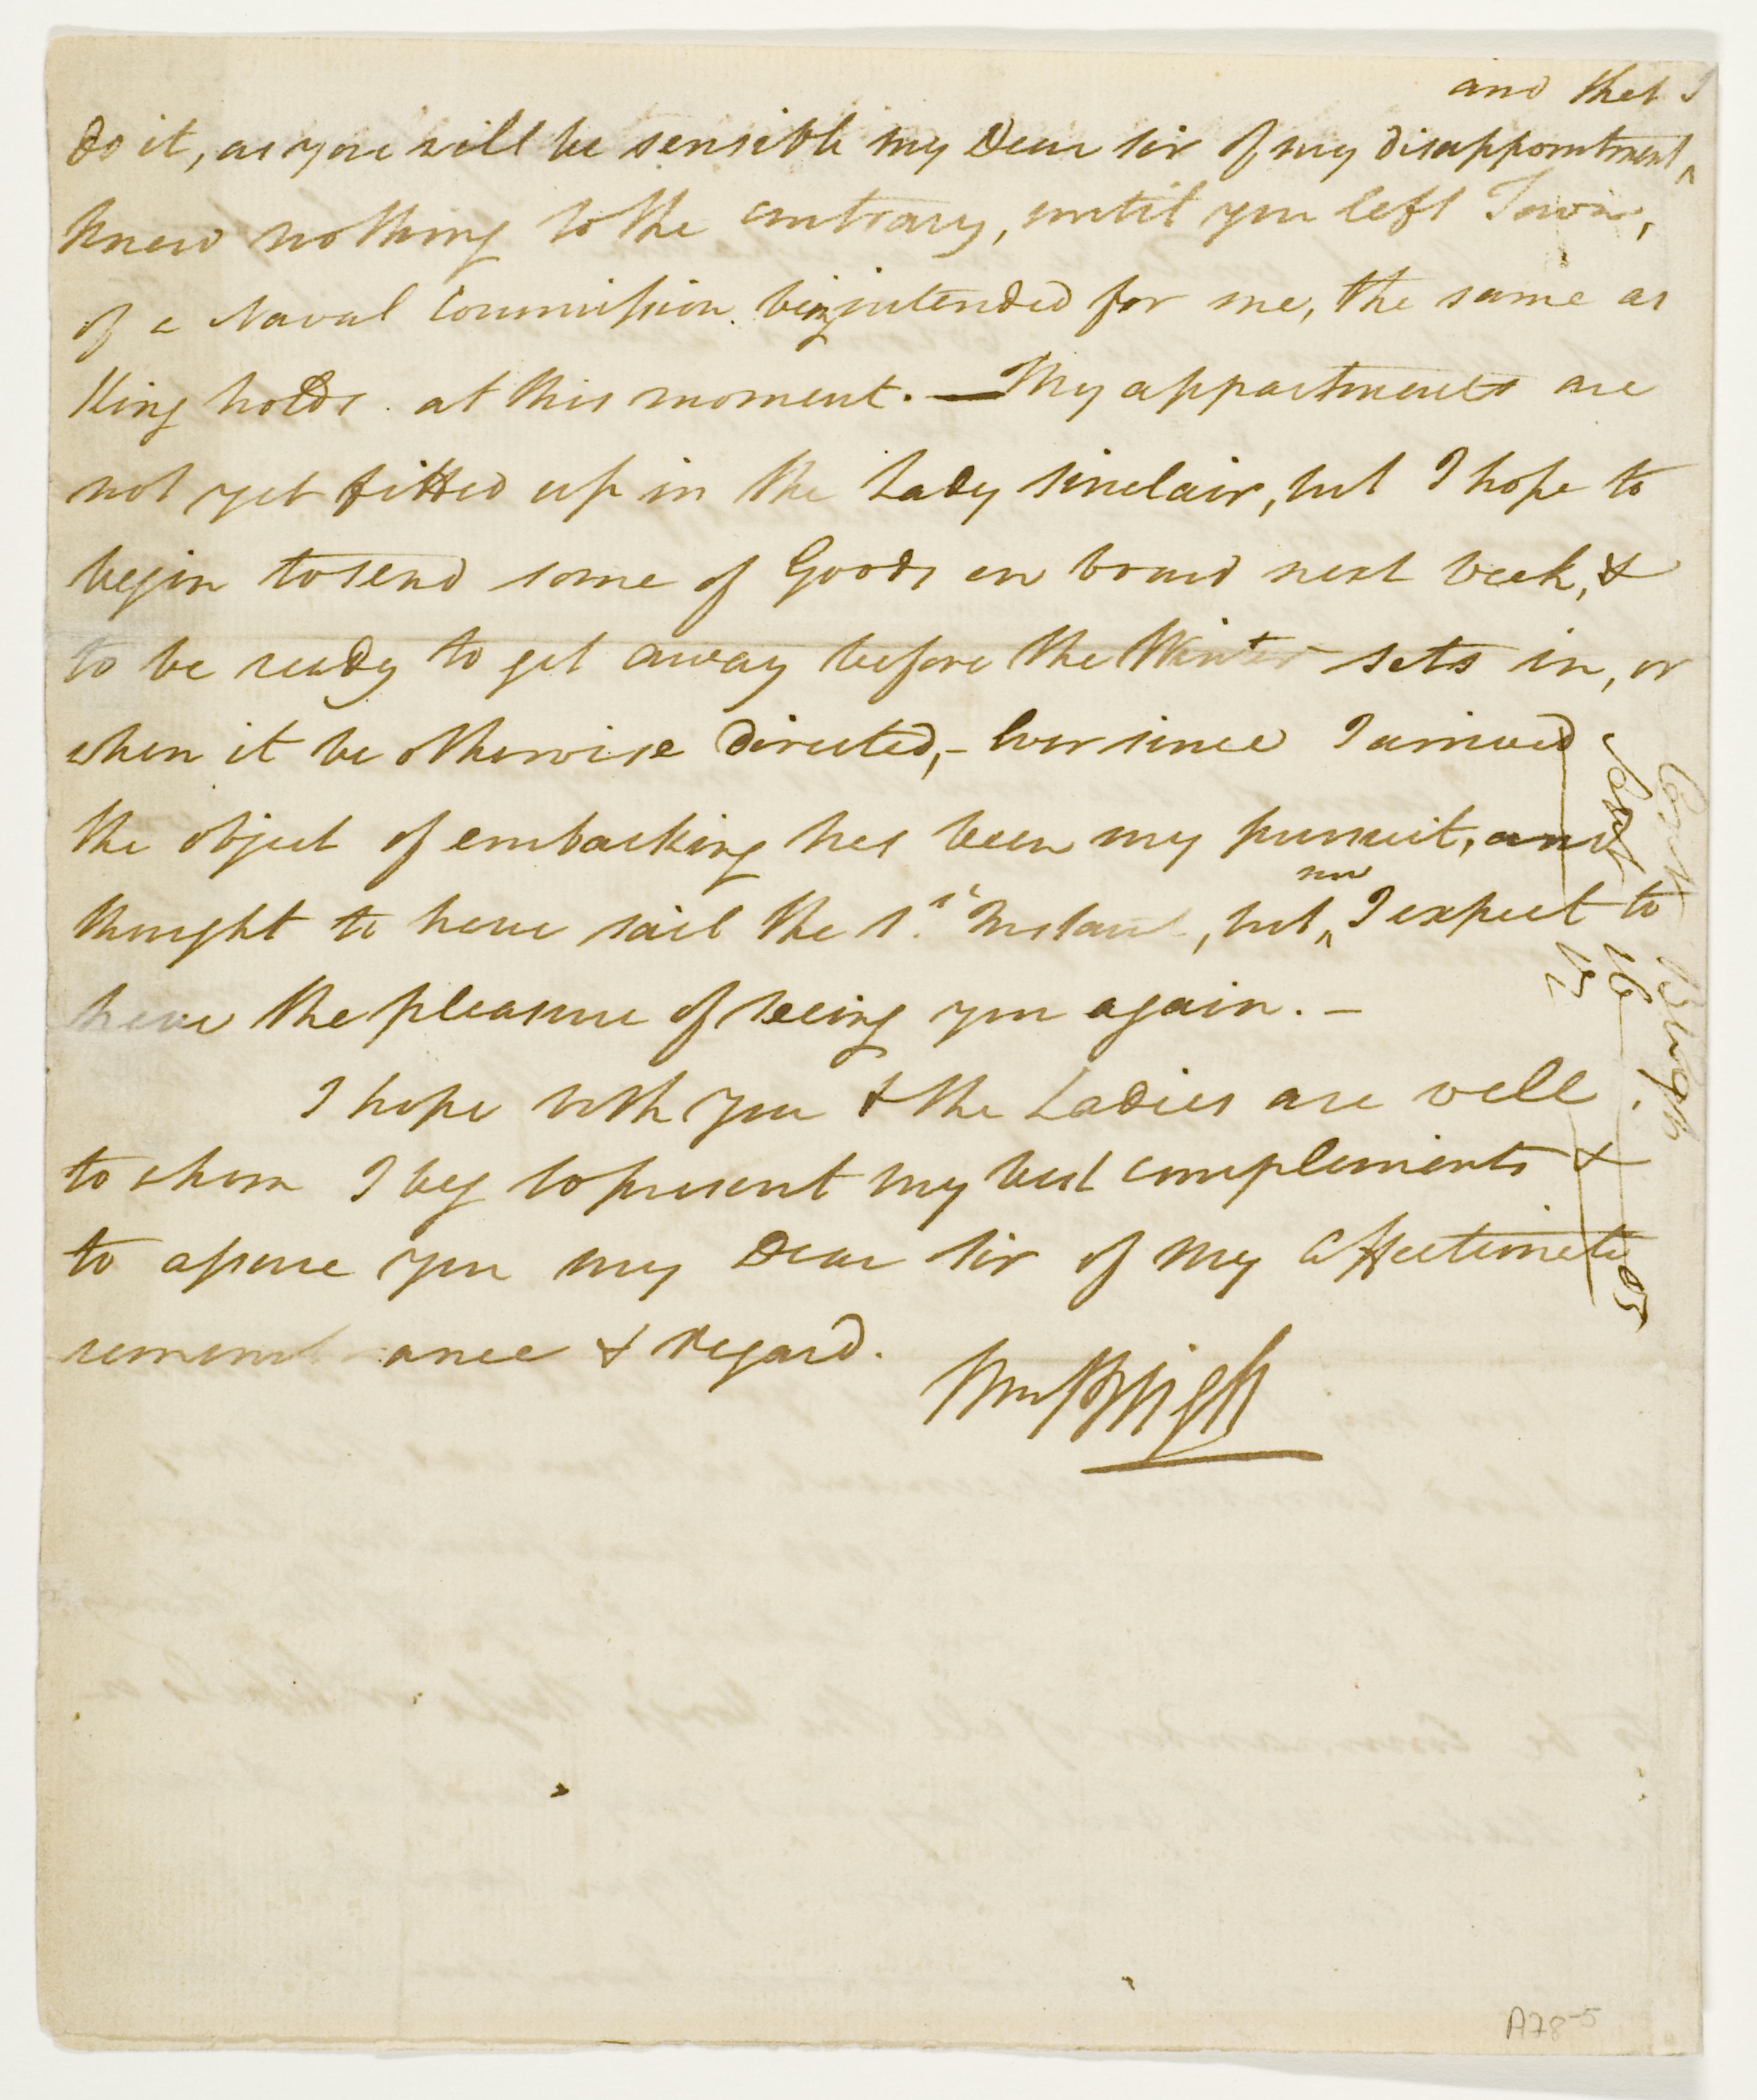 and that I
do it, as you will be sensible my Dear Sir of my disappointment ^
knew nothing to the contrary, until you left Town,
of a Naval Commission being intended for me, the same as
King holds at this moment. — My appartments are
not yet fitted up in the Lady Sinclair, but I hope to
begin to send some of Goods on board next Week, &
to be ready to get away before the Winter sets in, or
when it be otherwise directed, - Ever since I arrived
the object of embarking has been my pursuit, and
now
thought to have sail the 1st Instant, but ^ I expect to
have the pleasure of seeing you again. —
I hope both you & the Ladies are well
to whom I beg to present my best compliments &
to assure you my Dear Sir of my Affectionate
remembrance & regard.
Wm Bligh
Bligh
Sept
16
05
A78-5